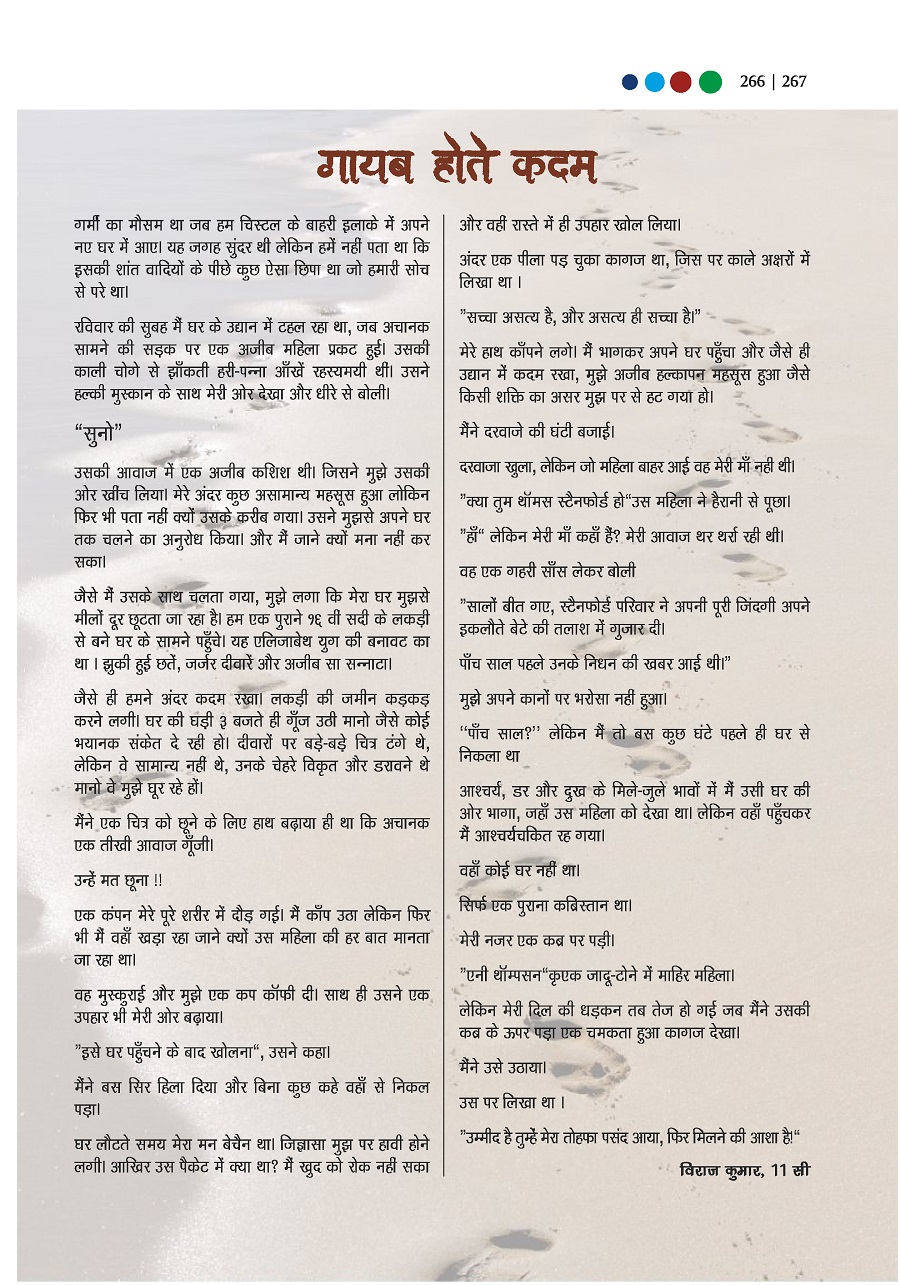 266 | 267
गायब होते कदम
गर्मी का मौसम था जब हम चिस्टल के बाहरी इलाके में अपने
नए घर में आए। यह जगह सुंदर थी लेकिन हमें नहीं पता था कि
इसकी शांत वादियों के पीछे कुछ ऐसा छिपा था जो हमारी सोच
से परे था।
रविवार की सुबह मैं घर के उद्यान में टहल रहा था, जब अचानक
सामने की सड़क पर एक अजीब महिला प्रकट हुई। उसकी
काली चोगे से झाँकती हरी-पन्ना आँखें रहस्यमयी थी। उसने
हल्की मुस्कान के साथ मेरी ओर देखा और धीरे से बोली।
“सुनो”
उसकी आवाज में एक अजीब कशिश थी। जिसने मुझे उसकी
ओर खींच लिया। मेरे अंदर कुछ असामान्य महसूस हुआ लोकिन
फिर भी पता नहीं क्यों उसके करीब गया। उसने मुझसे अपने घर
तक चलने का अनुरोध किया। और मैं जाने क्यों मना नहीं कर
सका।
जैसे मैं उसके साथ चलता गया, मुझे लगा कि मेरा घर मुझसे
मीलों दूर छूटता जा रहा है। हम एक पुराने १६ वीं सदी के लकड़ी
से बने घर के सामने पहुँचे। यह एलिजाबेथ युग की बनावट का
था । झुकी हुई छतें, जर्जर दीवारें और अजीब सा सन्नाटा।
जैसे ही हमने अंदर कदम रखा। लकड़ी की जमीन कड़कड़
करने लगी। घर की घंड़ी ३ बजते ही गूँज उठी मानो जैसे कोई
भयानक संकेत दे रही हो। दीवारों पर बड़े-बड़े चित्र टंगे थे,
लेकिन वे सामान्य नहीं थे, उनके चेहरे विकृत और डरावने थे
मानो वे मुझे घूर रहे हों।
मैंने एक चित्र को छूने के लिए हाथ बढ़ाया ही था कि अचानक
एक तीखी आवाज गूँजी।
उन्हें मत छूना !!
एक कंपन मेरे पूरे शरीर में दौड़ गई। मैं काँप उठा लेकिन फिर
भी मैं वहाँ खड़ा रहा जाने क्यों उस महिला की हर बात मानता
जा रहा था।
वह मुस्कुराई और मुझे एक कप कॉफी दी। साथ ही उसने एक
उपहार भी मेरी ओर बढ़ाया।
”इसे घर पहुँचने के बाद खोलना“, उसने कहा।
मैंने बस सिर हिला दिया और बिना कुछ कहे वहाँ से निकल
पड़ा।
घर लौटते समय मेरा मन बेचैन था। जिज्ञासा मुझ पर हावी होने
लगी। आखिर उस पैकेट में क्या था? मैं खुद को रोक नहीं सका
और वहीं रास्ते में ही उपहार खोल लिया।
अंदर एक पीला पड़ चुका कागज था, जिस पर काले अक्षरों में
लिखा था ।
”सच्चा असत्य है, और असत्य ही सच्चा है।”
मेरे हाथ काँपने लगे। मैं भागकर अपने घर पहुँचा और जैसे ही
उद्यान में कदम रखा, मुझे अजीब हल्कापन महसूस हुआ जैसे
किसी शक्ति का असर मुझ पर से हट गया हो।
मैंने दरवाजे की घंटी बजाई।
दरवाजा खुला, लेकिन जो महिला बाहर आई वह मेरी माँ नही थी।
”क्या तुम थॉमस स्टैनफोर्ड हो“उस महिला ने हैरानी से पूछा।
”हाँ“ लेकिन मेरी माँ कहाँ हैं? मेरी आवाज थर थर्रा रही थी।
वह एक गहरी साँस लेकर बोली
”सालों बीत गए, स्टैनफोर्ड परिवार ने अपनी पूरी जिंदगी अपने
इकलौते बेटे की तलाश में गुजार दी।
पाँच साल पहले उनके निधन की खबर आई थी।”
मुझे अपने कानों पर भरोसा नहीं हुआ।
‘‘पाँच साल?’’ लेकिन मैं तो बस कुछ घंटे पहले ही घर से
निकला था
आश्चर्य, डर और दुख के मिले-जुले भावों में मैं उसी घर की
ओर भागा, जहाँ उस महिला को देखा था। लेकिन वहाँ पहुँचकर
मैं आश्चर्यचकित रह गया।
वहाँ कोई घर नहीं था।
सिर्फ एक पुराना कब्रिस्तान था।
मेरी नजर एक कब्र पर पड़ी।
”एनी थॉम्पसन“कृएक जादू-टोने में माहिर महिला।
लेकिन मेरी दिल की धड़कन तब तेज हो गई जब मैंने उसकी
कब्र के ऊपर पड़ा एक चमकता हुआ कागज देखा।
मैंने उसे उठाया।
उस पर लिखा था ।
”उम्मीद है तुम्हें मेरा तोहफा पसंद आया, फिर मिलने की आशा है!“
विराज कुमार, 11 सी